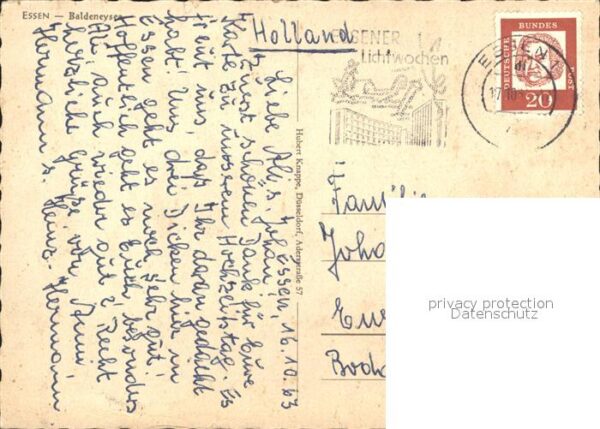 ESSEN — Baldeneysee
Holland
ESSENER
Lichtwochen
ESSEN 1
DEUTSCHE
BUNDES
POST
20
Essen, 16.10.63
Liebe Ali's, Johan
Zuerst schönen Dank für Eure
Karte zu unserem Hochzeitstag. Es
freut uns, dass Ihr daran gedacht
habt. Uns drei Dicken hier in
Essen geht es noch sehr gut.
Hoffentlich geht es Euch besonders
Ali auch wieder gut? Recht
herzliche Grüße von Anni
Hermann u. Heinz-Hermann
Hubert Knappe, Düsseldorf, Adersstraße 57
Familie
Joha
Eur
Boch
privacy protection
Datenschutz